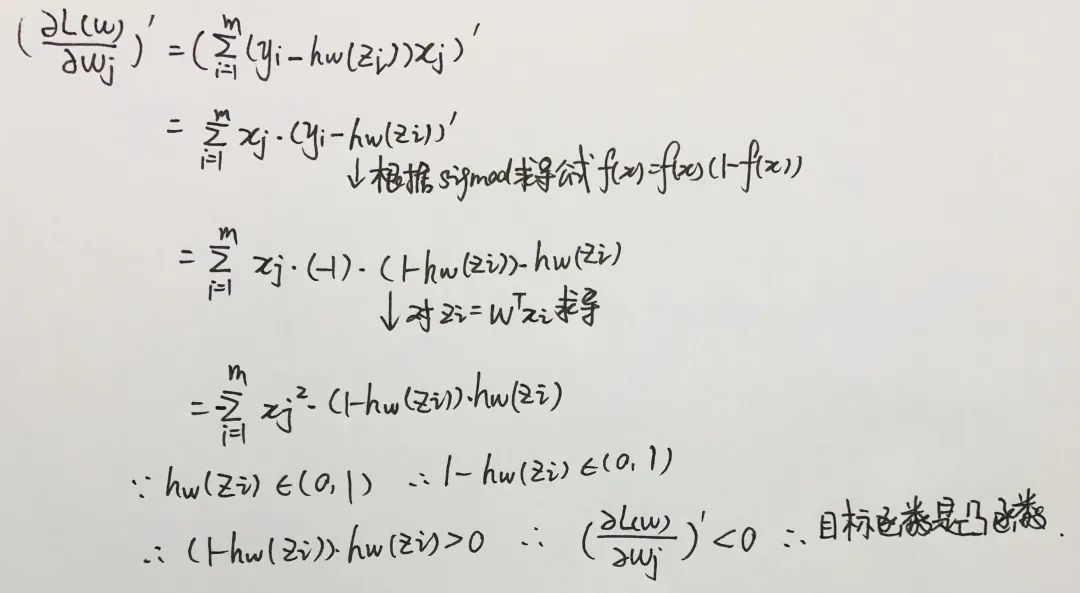 (∂L(w)/∂wj)' = (∑_{i=1}^{m}(yi-hw(zi))xj)'
= ∑_{i=1}^{m} xj·(yi-hw(zi))'
↓根据sigmod求导公式 f(x)=f(x)(1-f(x))
= ∑_{i=1}^{m} xj·(-1)·(1-hw(zi))·hw(zi)
↓对zi=w^T xi求导
= -∑_{i=1}^{m} xj²·(1-hw(zi))·hw(zi)
∵ hw(zi)∈(0,1) ∴ 1-hw(zi)∈(0,1)
∴ (1-hw(zi))·hw(zi)>0 ∴ (∂L(w)/∂wj)'<0 ∴ 目标函数是凸函数.